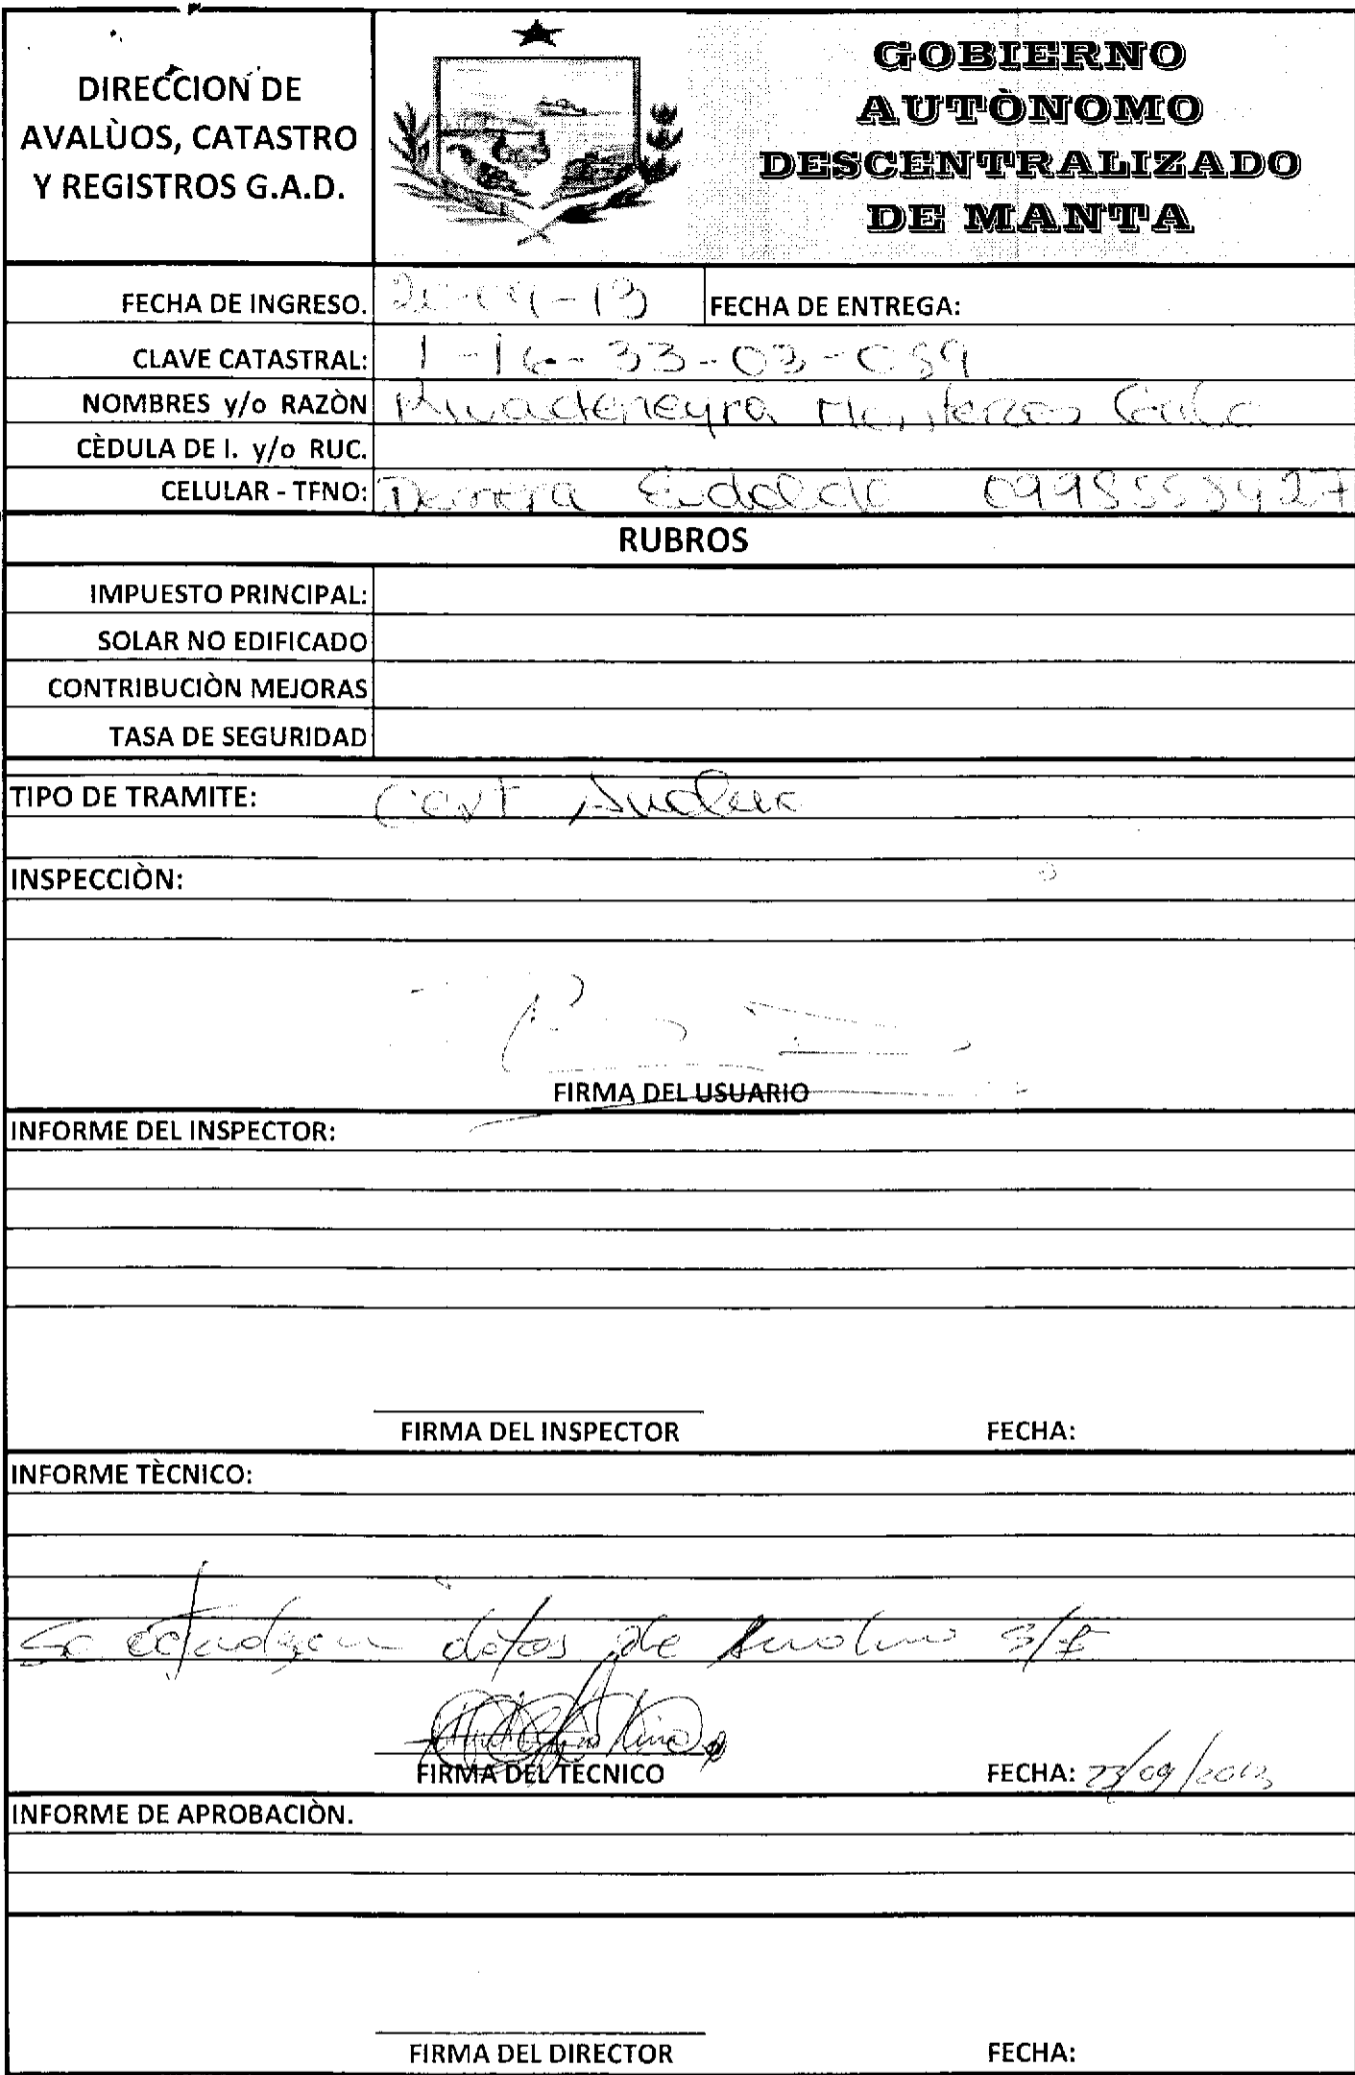 DIRECCION DE
AVALÙOS, CATASTRO
Y REGISTROS G.A.D.
GOBIERNO
AUTÒNOMO
DESCENTRALIZADO
DE MANTA
FECHA DE INGRESO. 20-09-13 FECHA DE ENTREGA:
CLAVE CATASTRAL: 1-16-33-03-059
NOMBRES y/o RAZÒN Rivadeneyra
CÈDULA DE I. y/o RUC.
CELULAR - TFNO:
RUBROS
IMPUESTO PRINCIPAL:
SOLAR NO EDIFICADO
CONTRIBUCIÒN MEJORAS
TASA DE SEGURIDAD
TIPO DE TRAMITE: Cert
INSPECCIÒN:
FIRMA DEL USUARIO
INFORME DEL INSPECTOR:
FIRMA DEL INSPECTOR FECHA:
INFORME TÈCNICO:
Se datos de
FIRMA DEL TÈCNICO FECHA: 23/09/2013
INFORME DE APROBACIÒN.
FIRMA DEL DIRECTOR FECHA: